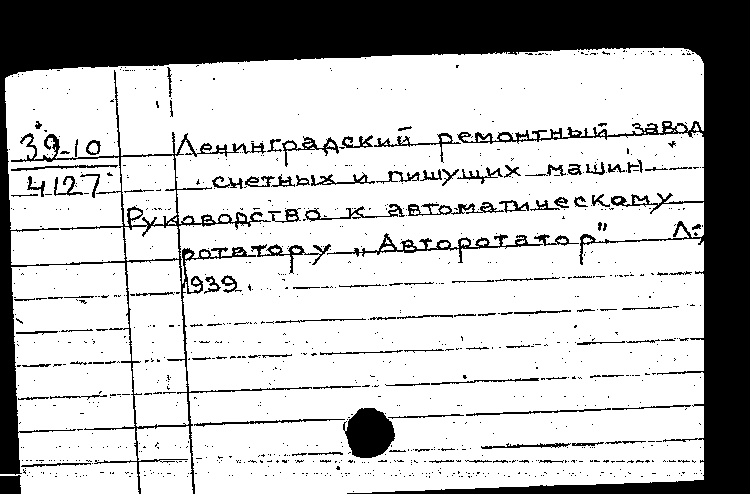 39-10
4127
Ленинградский ремонтный завод
счетных и пишущих машин.
Руководство к автоматическому
ротатору „Авторотатор". Л.,
1939.